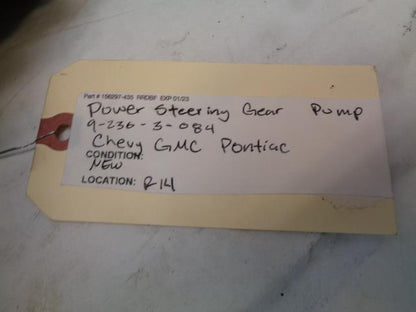 Part # 156297-435 RRDBF EXP 01/23
Power Steering Gear Pump
9-236-3-084
Chevy GMC Pontiac
CONDITION:
NEW
LOCATION: R14